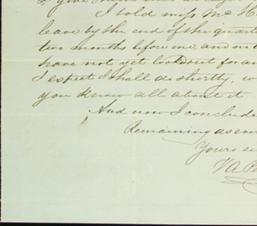 I told miss Mc H
leave by the end of the quart
two months before me, and in t
have not yet looked out for an
I expect I shall do shortly, w
you know all about it
And now I conclude
Remaining as ev
Yours si